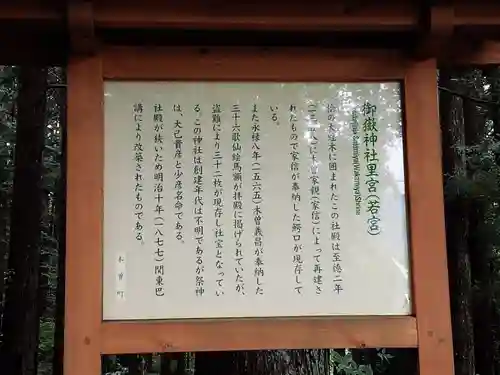 御嶽神社里宮(若宮)
Ontake Satomiya(Wakamiya)Shrine
の大坦木に囲まれたこの社殿は至徳二年
(一三八五)に木曽家親(家信)によって再建さ
れたもので家信が奉納した鰐口が現存して
いる。
また永禄八年(一五六五)木曽義昌が奉納した
三十六歌仙絵馬額が拝殿に掲げられていたが、
盗難により三十二枚が現存し社宝となってい
る。この神社は創建年代は不明であるが祭神
は、大己貴彦と少彦名命である。
社殿が続いたため明治十年(一八七七)関東巴
講により改築されたものである。
木曽町